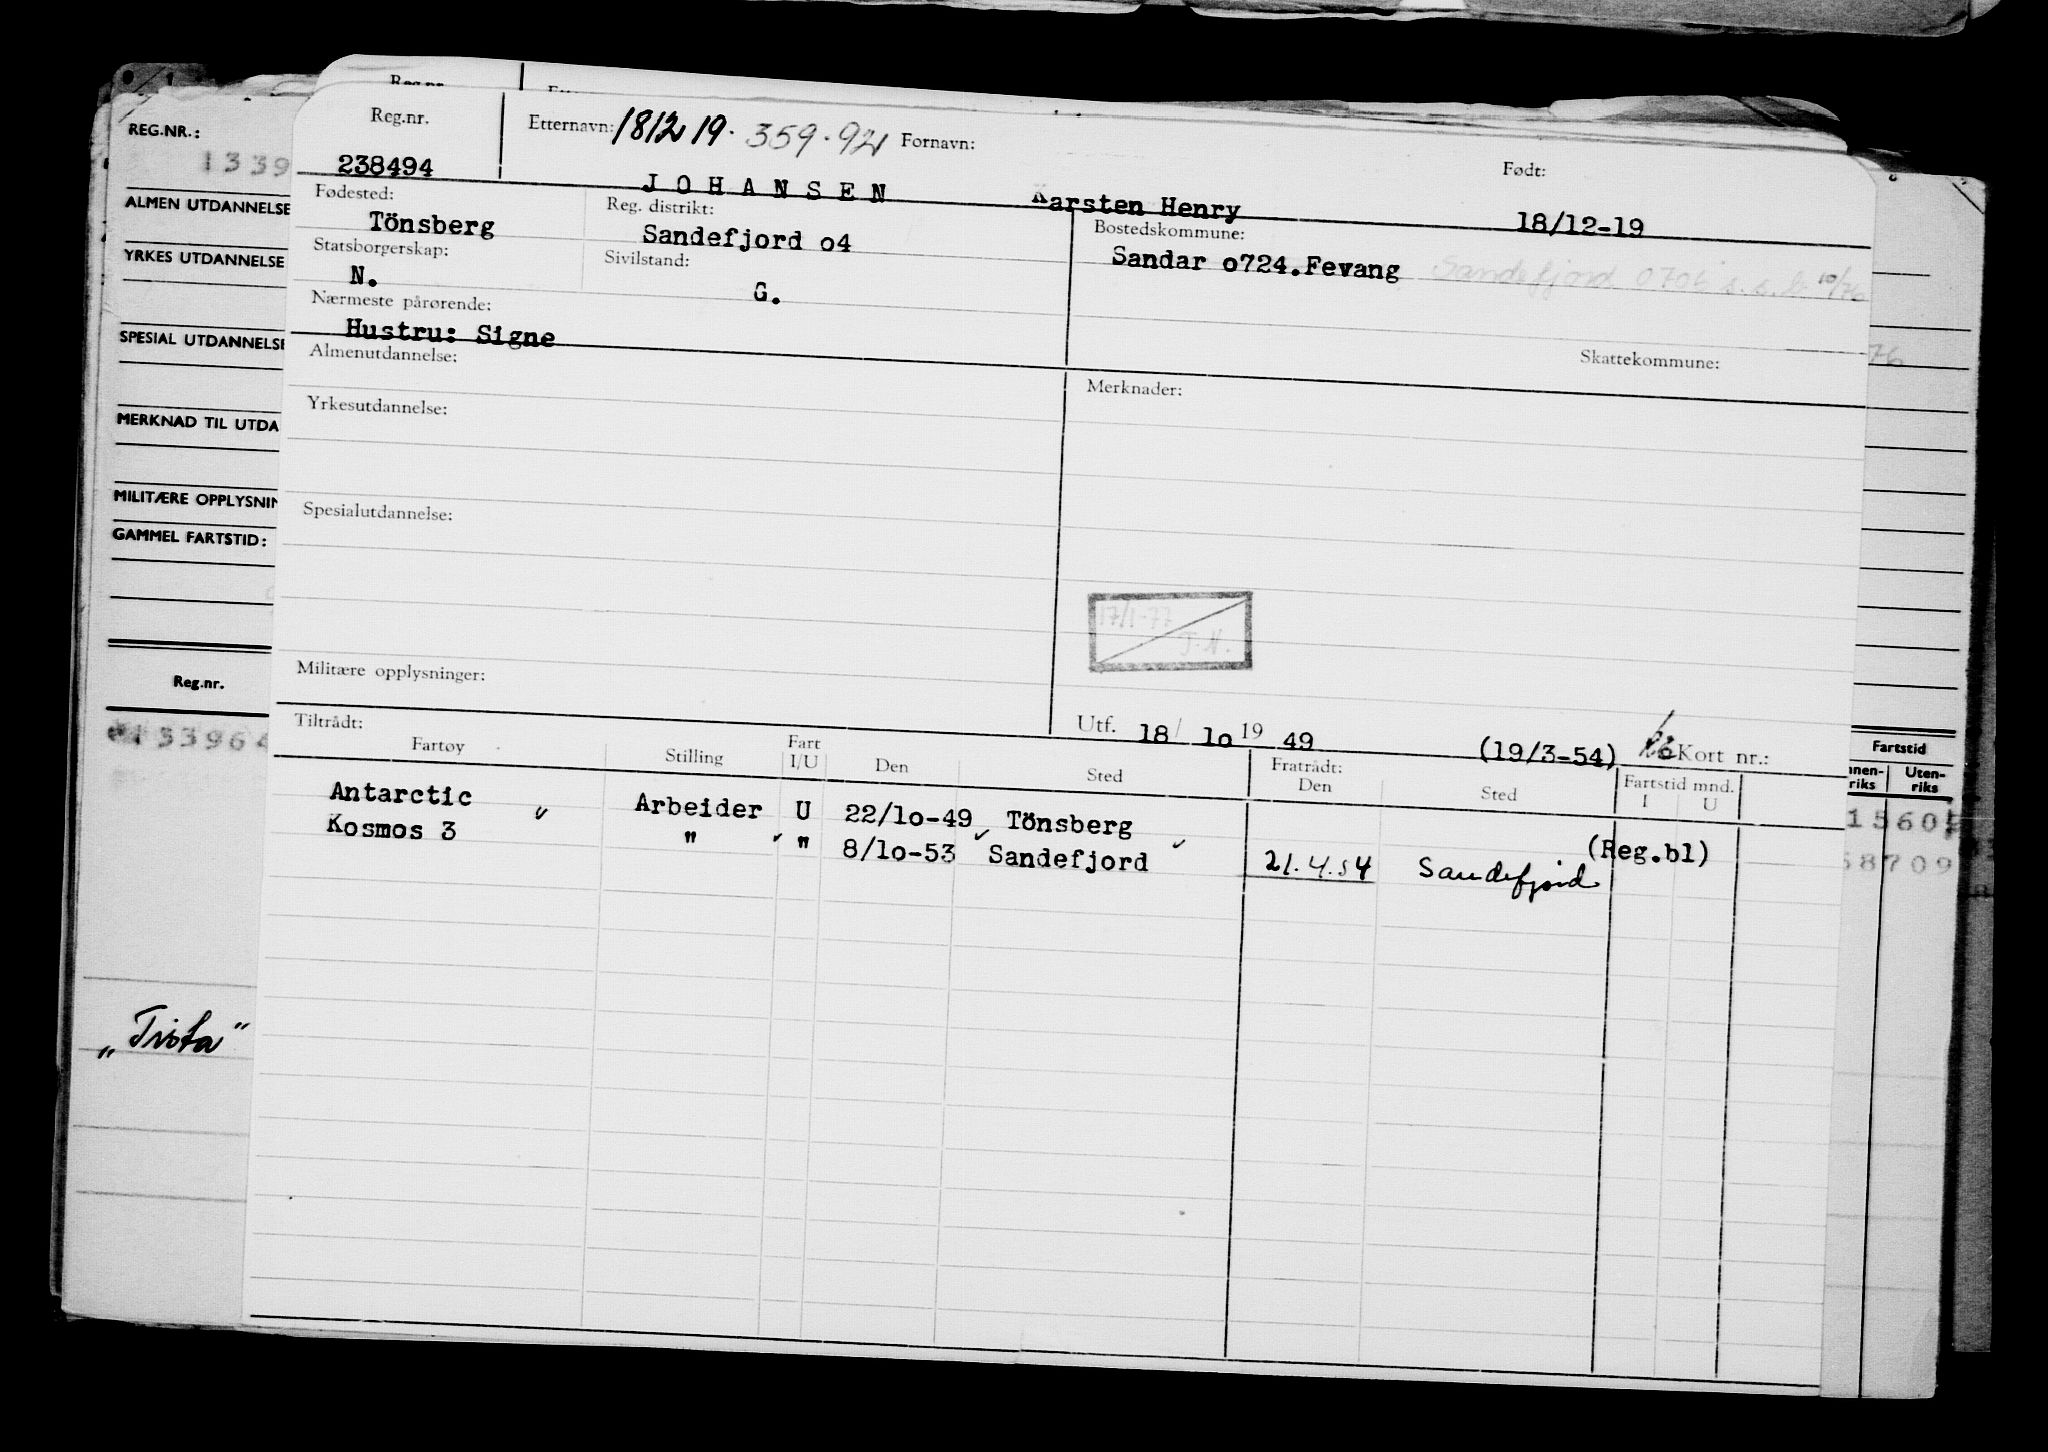 Reg.nr.
REG.NR.:
1339
ALMEN UTDANNELSE
YRKES UTDANNELSE
SPESIAL UTDANNELSE
MERKNAD TIL UTDA
MILITÆRE OPPLYSNIN
GAMMEL FARTSTID:
Reg.nr.
133964
„Trista"
Reg.nr. Etternavn: 181219. 359.92 Fornavn: Født:
238494 JOHANSEN Karsten Henry 18/12-19
Fødested: Reg. distrikt: Bostedskommune:
Tönsberg Sandefjord o4 Sandar o724.Fevang Sandefjord 0706 s.s.b. 10/76
Statsborgerskap: Sivilstand:
N. G.
Nærmeste pårørende:
Hustru: Signe
Skattekommune:
Almenutdannelse: Merknader:
Yrkesutdannelse:
Spesialutdannelse:
17/1-77
J.H.
Militære opplysninger:
Utf. 18/ 1o 19 49 (19/3-54) Kort nr.:
Tiltrådt: Fratrådt:
Fartøy Stilling Fart I/U Den Sted Den Sted Fartstid mnd. I U
Antarctic Arbeider U 22/1o-49 Tönsberg (Reg.bl)
Kosmos 3 " " 8/1o-53 Sandefjord 21.4.54 Sandefjord
76
Fartstid
nnen-riks Uten-riks
1560
68709